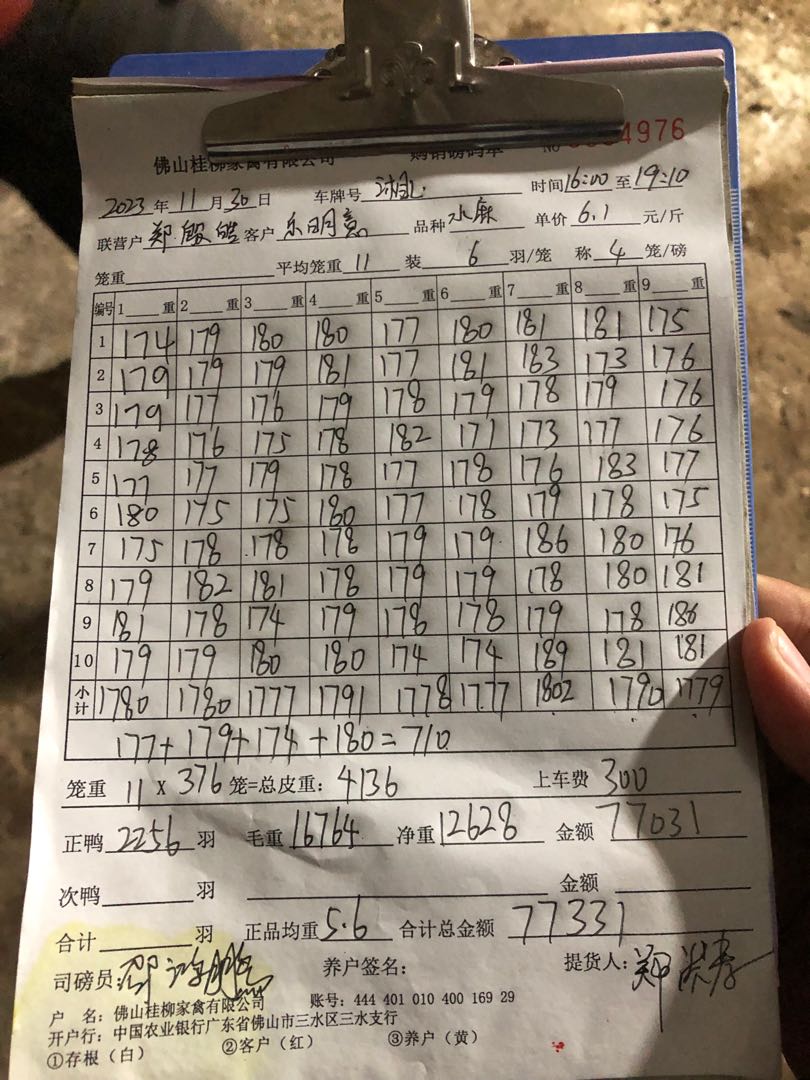 佛山桂柳家禽有限公司 购销磅码单 No 4976
2023年11月30日 车牌号 时间16:00至19:10
联营户 郑 客户 乐明意 品种 水麻 单价 6.1 元/斤
笼重 平均笼重 11 装 6 羽/笼 称 4 笼/磅
编号 1 重 2 重 3 重 4 重 5 重 6 重 7 重 8 重 9 重
1 174 179 180 180 177 180 181 181 175
2 179 179 179 181 177 181 183 173 176
3 179 177 176 179 178 179 178 179 176
4 178 176 175 178 182 171 173 177 176
5 177 177 179 178 177 178 176 183 177
6 180 175 175 180 177 178 179 178 175
7 175 178 178 178 179 179 186 180 176
8 179 182 181 178 179 179 178 180 181
9 181 178 174 179 178 178 179 178 186
10 179 179 180 180 174 174 189 181 181
小计 1780 1780 1777 1791 1778 1777 1802 1790 1779
177+179+174+180=710
笼重 11 x 376 笼=总皮重: 4136 上车费 300
正鸭 2256 羽 毛重 16764 净重 12628 金额 77031
次鸭 羽 金额
合计 羽 正品均重 5.6 合计总金额 77331
司磅员: 养户签名: 提货人: 郑
户 名: 佛山桂柳家禽有限公司 账号: 444 401 010 400 169 29
开户行: 中国农业银行广东省佛山市三水区三水支行
①存根(白) ②客户(红) ③养户(黄)